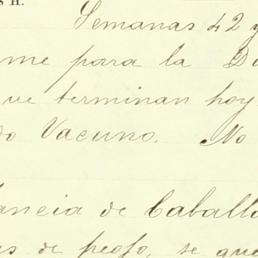 s H.
Semanas 42 y
me para la D
ue terminan hoy
do Vacuno. No
ancia de Caballo
as de peoso, se que